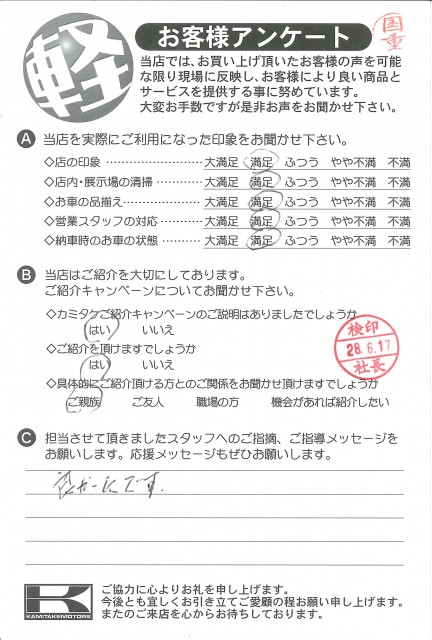 軽
お客様アンケート
国重
当店では、お買い上げ頂いたお客様の声を可能
な限り現場に反映し、お客様により良い商品と
サービスを提供する事に努めています。
大変お手数ですが是非お声をお聞かせ下さい。
A 当店を実際にご利用になった印象をお聞かせ下さい。
◇店の印象 ………………………… 大満足 満足 ふつう やや不満 不満
◇店内・展示場の清掃 …………… 大満足 満足 ふつう やや不満 不満
◇お車の品揃え …………………… 大満足 満足 ふつう やや不満 不満
◇営業スタッフの対応 …………… 大満足 満足 ふつう やや不満 不満
◇納車時のお車の状態 …………… 大満足 満足 ふつう やや不満 不満
B 当店はご紹介を大切にしております。
ご紹介キャンペーンについてお聞かせ下さい。
◇カミタケご紹介キャンペーンのご説明はありましたでしょうか
はい いいえ
◇ご紹介を頂けますでしょうか
はい いいえ
◇具体的にご紹介頂ける方とのご関係をお聞かせ頂けますでしょうか
ご親族 ご友人 職場の方 機会があれば紹介したい
検印
28.6.17
社長
C 担当させて頂きましたスタッフへのご指摘、ご指導メッセージを
お願いします。応援メッセージもぜひお願いします。
です。
K
KAMITAKEMOTORS
ご協力に心よりお礼を申し上げます。
今後とも宜しくお引き立てご愛顧の程お願い申し上げます。
またのご来店を心からお待ちしております。